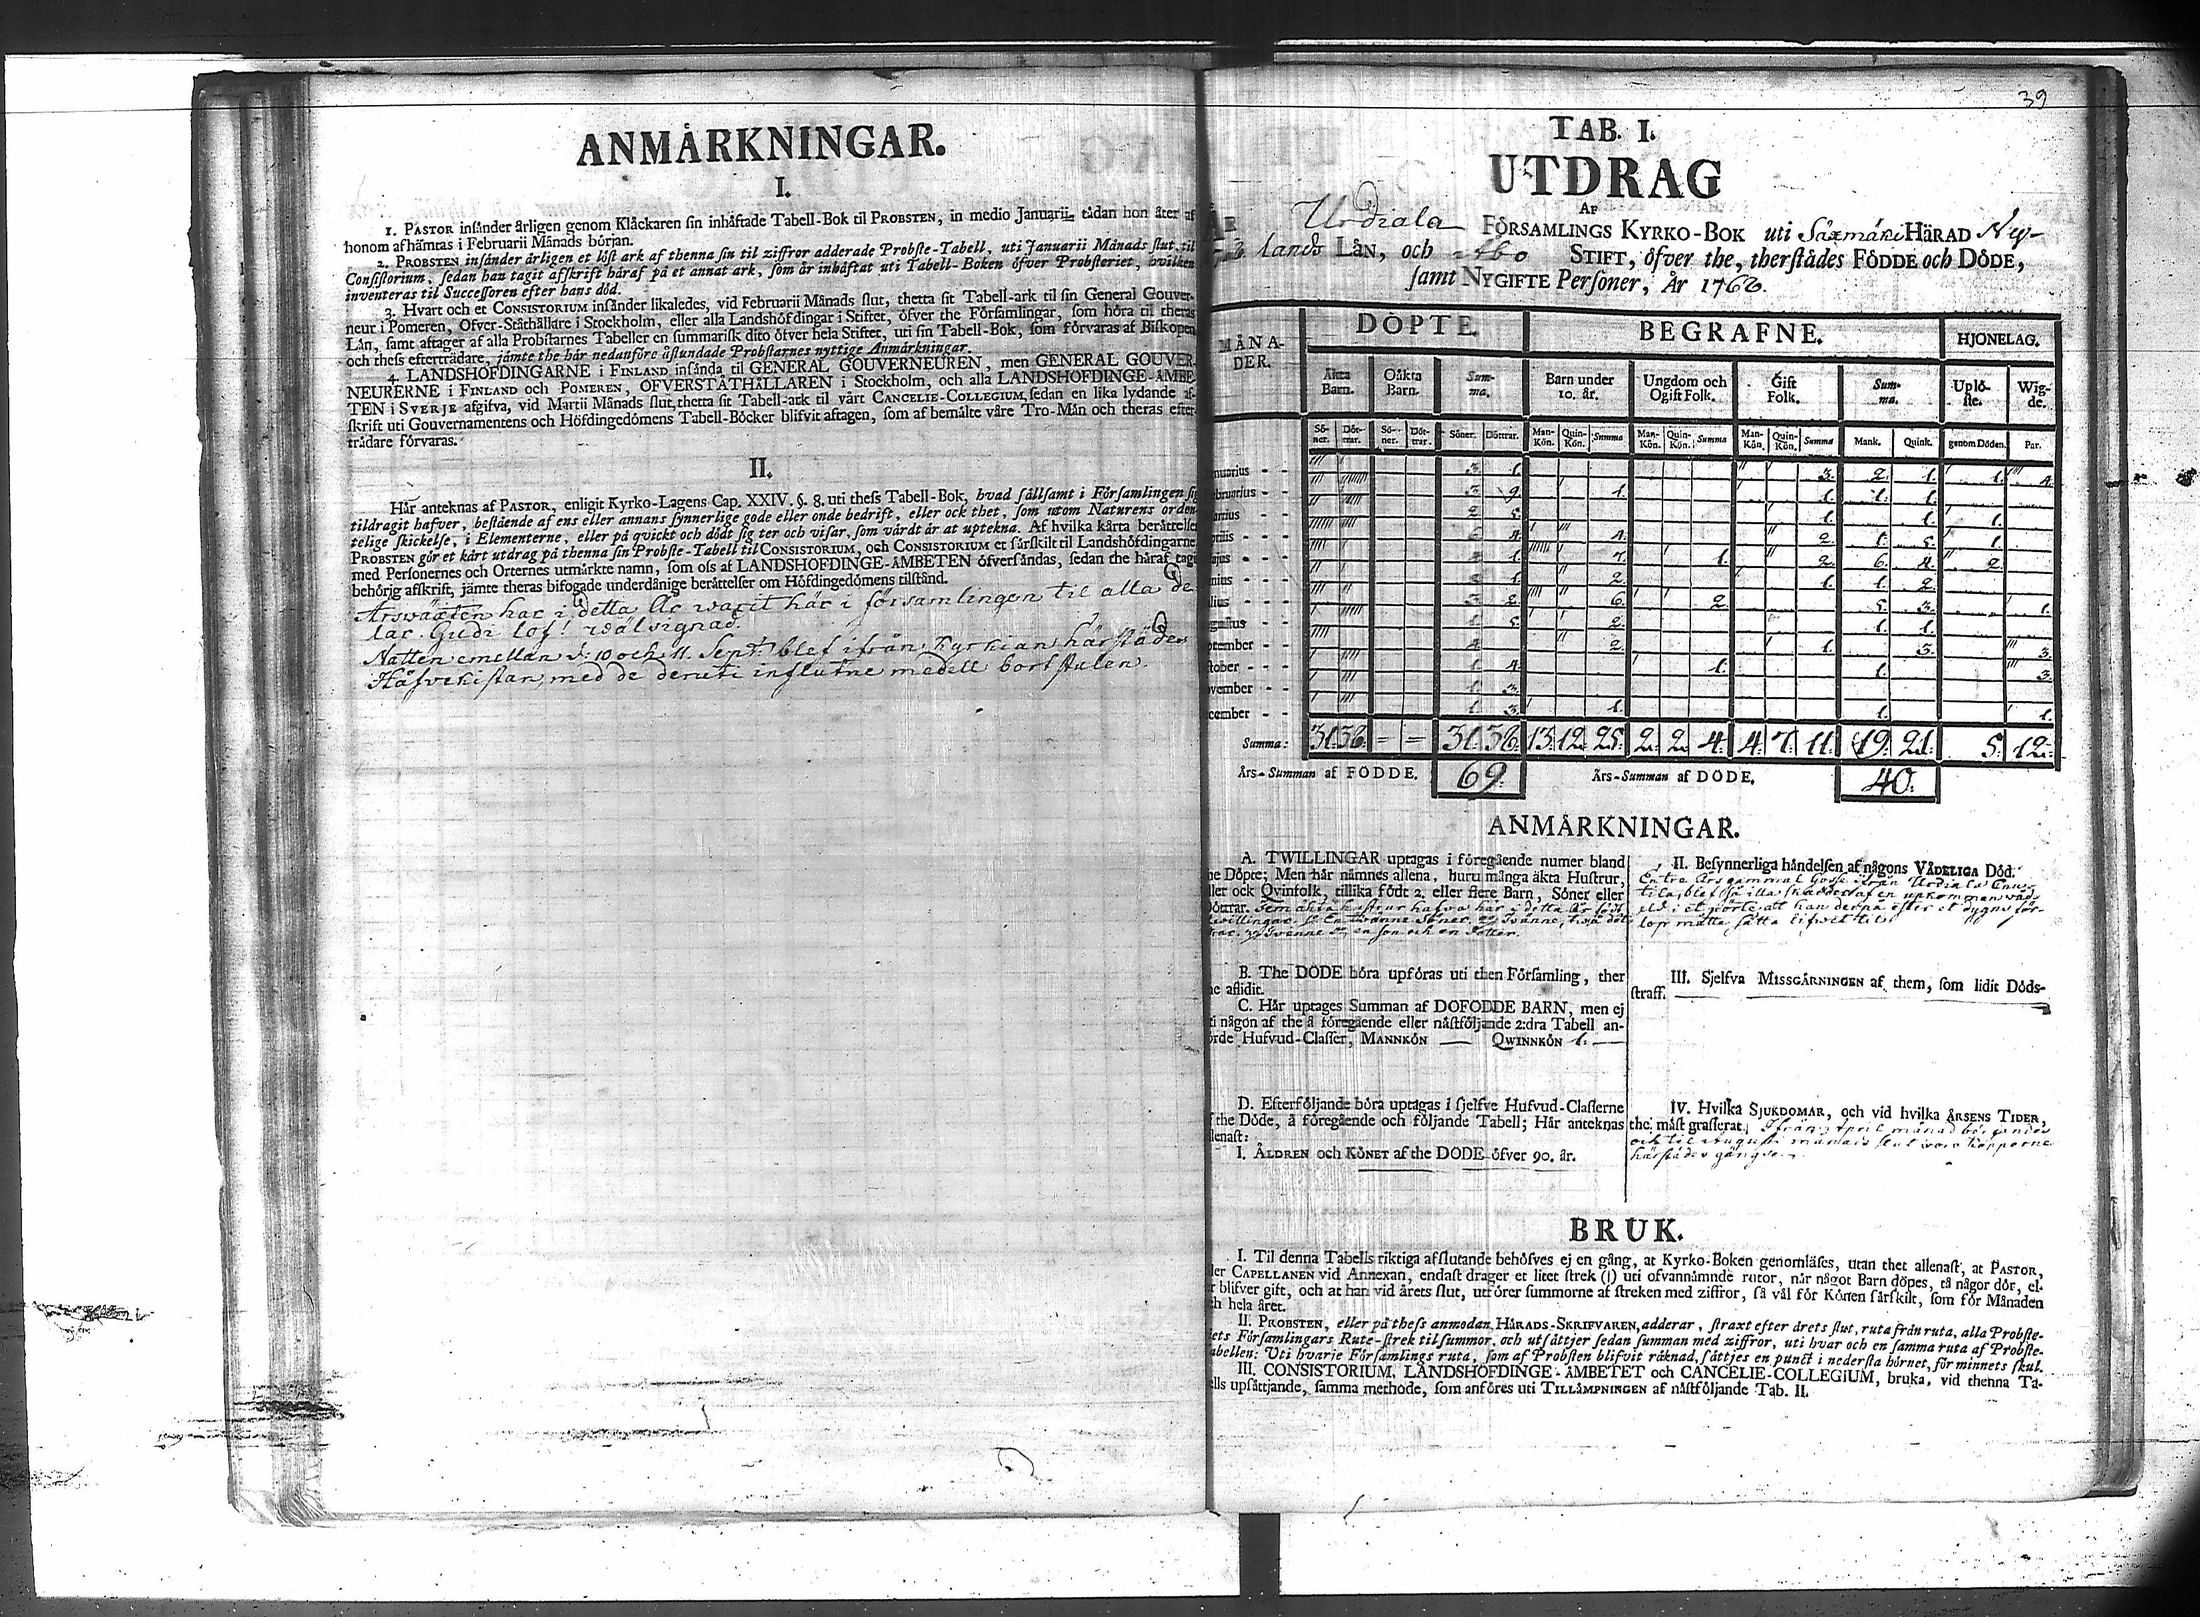 ANMÅRKNINGAR.
I.
1. PASTOR insånder årligen genom Klåckaren sin inhåftade Tabell-Bok til PROBSTEN, in medio Januarii, sådan hon åter af
honom afhåmtas i Februarii Månads början.
2. PROBSTEN insånder årligen et löst ark af thenna sin til ziffror adderade Probste-Tabell, uti Januarii Månads slut, til
Consistorium, sedan han tagit afskrift håraf på et annat ark, som år inhåftat uti Tabell-Boken öfver Probsteriet, hvilken
inventeras til Successoren efter hans död.
3. Hvart och et CONSISTORIUM insånder likaledes, vid Februarii Månads slut, thetta sit Tabell-ark til sin General Gouver-
neur i Pomeren, Öfver-Ståthållare i Stockholm, eller alla Landshöfdingar i Stiftet, öfver the Församlingar, som höra til theras
Lån, samt aftager af alla Probstarnes Tabeller en summarisk dito öfver hela Stiftet, uti sin Tabell-Bok, som förvaras af Biskopen
och thess eftertrådare, jåmte the hår nedanföre åstundade Probstarnes nyttige Anmårkningar.
4. LANDSHÖFDINGARNE i FINLAND insånda til GENERAL GOUVERNEUREN, men GENERAL GOUVER-
NEURERNE i FINLAND och POMEREN, ÖFVERSTÅTHÅLLAREN i Stockholm, och alla LANDSHÖFDINGE-ÅMBE-
TEN i SVERJE afgifva, vid Martii Månads slut, thetta sit Tabell-ark til vårt CANCELIE-COLLEGIUM, sedan en lika lydande af-
skrift uti Gouvernamentens och Höfdingedömens Tabell-Böcker blifvit aftagen, som af bemålte våre Tro-Mån och theras efter-
trådare förvaras.
II.
Hår anteknas af PASTOR, enligit Kyrko-Lagens Cap. XXIV. §. 8. uti thess Tabell-Bok, hvad sållsamt i Församlingen sig
tildragit hafver, bestående af ens eller annans synnerlige gode eller onde bedrift, eller ock thet, som utom Naturens orden-
telige skickelse, i Elementerne, eller på qvickt och dödt sig ter och visar, som vårdt år at uptekna. Af hvilka kårta beråttelser
PROBSTEN gör et kårt utdrag på thenna sin Probste-Tabell til CONSISTORIUM, och CONSISTORIUM et sårskilt til Landshöfdingarne,
med Personernes och Orternes utmårkte namn, som oss af LANDSHÖFDINGE-ÅMBETEN öfversåndas, sedan the håraf tagit
behörig afskrift, jåmte theras bifogade underdånige beråttelser om Höfdingedömens tilstånd.
Årswäxten har i detta År warit här i församlingen til alla de-
lar Gudi lof! wälsignad.
Natten emellan d. 10 och 11. Sept: blef ifrån Kyrkian härstädes
Håfvekistan, med de deruti influtne medell bortstulen.
39
TAB. I.
UTDRAG
AF
Urdiala FÖRSAMLINGS KYRKO-BOK uti Säxmäki HÄRAD Ny-
lands LÅN, och Åbo STIFT, öfver the, therstådes FÖDDE och DÖDE,
samt NYGIFTE Personer, År 1762.
MÅNA-
DER. DÖPTE. BEGRAFNE. HJONELAG.
Åkta Barn. Oåkta Barn. Sum-ma. Barn under 10. år. Ungdom och Ogift Folk. Gift Folk. Sum-ma. Uplö-ste. Wig-de.
Sö-ner. Döt-trar. Sö-ner. Döt-trar. Söner. Döttrar. Man-Kön. Quin-Kön. Summa Man-Kön. Quin-Kön. Summa Man-Kön. Quin-Kön. Summa Mank. Quink. genom Döden. Par.
nuarius - - 3 1. 3. 2. 1. 1. 4.
ebruarius - - 3 9. 1. 1. 1. 1.
artius - - 2 5. 1. 1. 1.
priis - - 6 4. 4. 2. 1. 5. 1.
ajus - - 4 1. 7. 1. 2. 6. 4. 2.
nius - - 5 1. 2. 1. 1. 2.
lius - - - 3 2. 6. 2. 5. 3. 1.
gustus - - 1 5. 2. 1. 1.
ptember - - 4 2. 1. 3. 3.
tober - - - 1 4. 1. 1. 3.
ovember - - 1 3.
cember - - 1 3. 1. 1. 1.
Summa: 31. 36. = = 31. 36. 13. 12. 25. 2. 2. 4. 4. 7. 11. 19. 21. 5. 12.
Års-Summan af FÖDDE. 69. Års-Summan af DÖDE. 40.
ANMÅRKNINGAR.
A. TWILLINGAR uptagas i föregående numer bland
he Döpte; Men hår nåmnes allena, huru många åkta Hustrur,
ller ock Qvinfolk, tillika födt 2. eller flere Barn, Söner eller
öttrar. Fem äkta hustrur hafva här i detta År födt
twillingar,
en son och en Dotter.
B. The DÖDE böra upföras uti then Församling, ther
he aflidit.
C. Hår uptages Summan af DÖFÖDDE BARN, men ej
ti någon af the å föregående eller nåstföljande 2:dra Tabell an-
örde Hufvud-Classer, MANNKÖN — QWINNKÖN 1. —
D. Efterföljande böra uptagas i sjelfve Hufvud-Classerne
f the Döde, å föregående och följande Tabell; Hår anteknas
llenast:
I. ÅLDREN och KÖNET af the DÖDE öfver 90. år.
II. Besynnerliga håndelsen af någons VÅDELIGA Död.
Gosse ifrån Urdiala
blef så illa skadder af en upkommen våd-
eld i et pörte, att han derpå efter et dygns för-
lopp måtte sätta lifvet til.
III. Sjelfva MISSGÅRNINGEN af them, som lidit Döds-
straff.
IV. Hvilka SJUKDOMAR, och vid hvilka ÅRSENS TIDER,
the måst grasserat. Ifrån April månads början
och til Augusti månads slut woro Kopporne
härstädes gängse.
BRUK.
I. Til denna Tabells riktiga afslutande behöfves ej en gång, at Kyrko-Boken genomläses, utan thet allenast, at PASTOR,
ler CAPELLANEN vid Annexan, endast drager et litet strek (|) uti ofvannåmnde rutor, når något Barn döpes, tå någor dör, el-
r blifver gift, och at han vid årets slut, utförer summorne af streken med ziffror, så vål för Könen sårskilt, som för Månaden
ch hela året.
II. PROBSTEN, eller på thess anmodan HÅRADS-SKRIFVAREN, adderar, straxt efter årets slut, ruta från ruta, alla Probste-
iets Församlingars Rute-strek til summor, och utsåttjer sedan summan med ziffror, uti hvar och en samma ruta af Probste-
abellen: Uti hvarje Församlings ruta, som af Probsten blifvit råknad, såttjes en punct i nedersta hörnet, för minnets skul.
III. CONSISTORIUM, LANDSHÖFDINGE-ÅMBETET och CANCELIE-COLLEGIUM, bruka, vid thenna Ta-
ells upsåttjande, samma methode, som anföres uti TILLÅMPNINGEN af nåstföljande Tab. II.